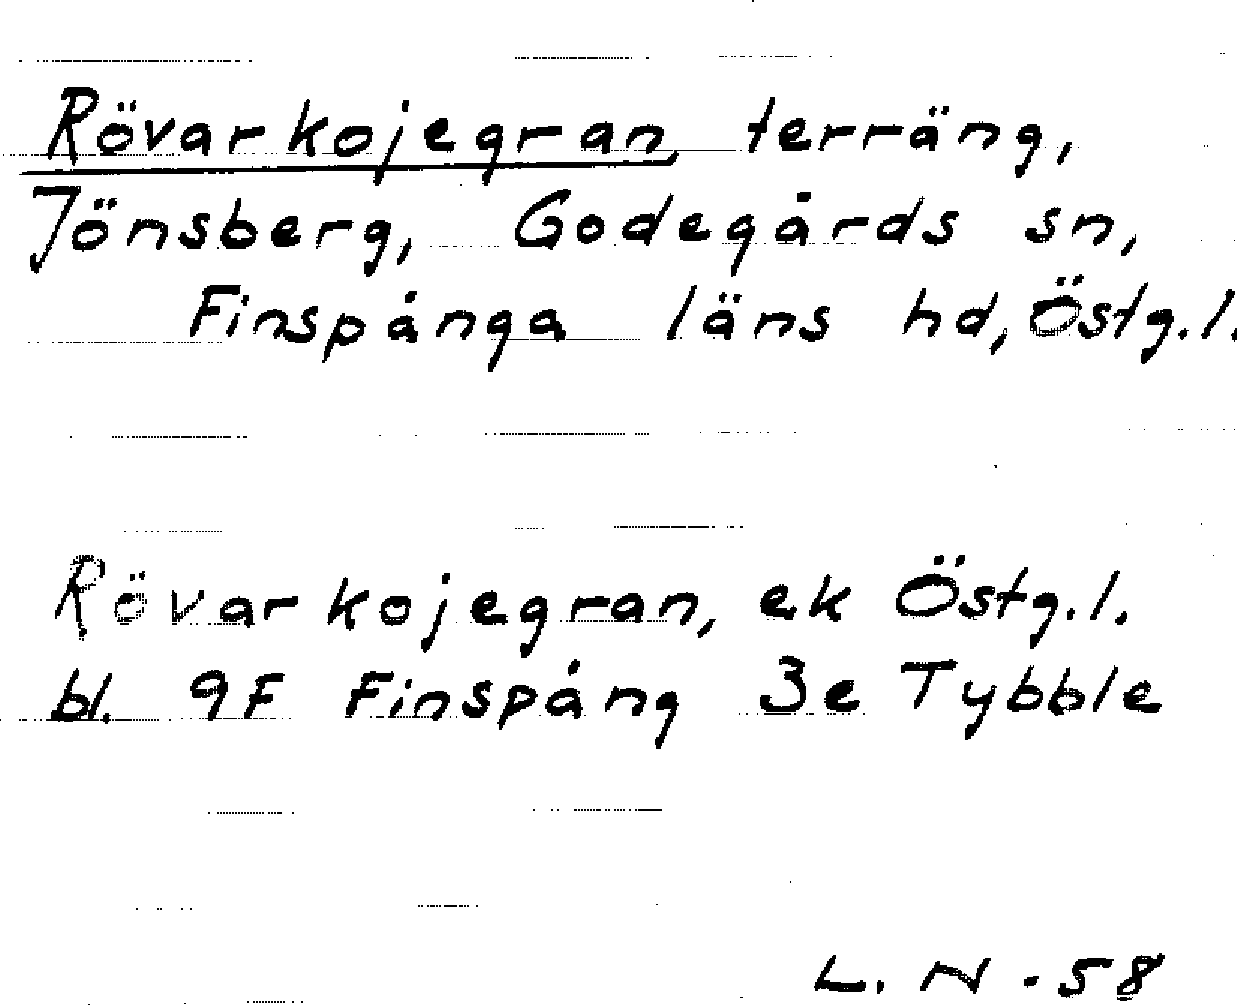 Rövarkojegran, terräng,
Jönsberg, Godegårds sn,
Finspånga läns hd, Östg.l.
Rövarkojegran, ek Östg.l.
bl. 9F Finspång 3e Tybble
L. N -58